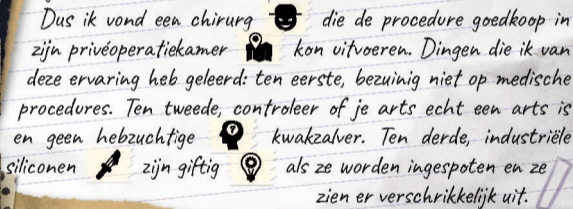 Dus ik vond een chirurg die de procedure goedkoop in
zijn privéoperatiekamer kon uitvoeren. Dingen die ik van
deze ervaring heb geleerd: ten eerste, bezuinig niet op medische
procedures. Ten tweede, controleer of je arts echt een arts is
en geen hebzuchtige kwakzalver. Ten derde, industriële
siliconen zijn giftig als ze worden ingespoten en ze
zien er verschrikkelijk uit.